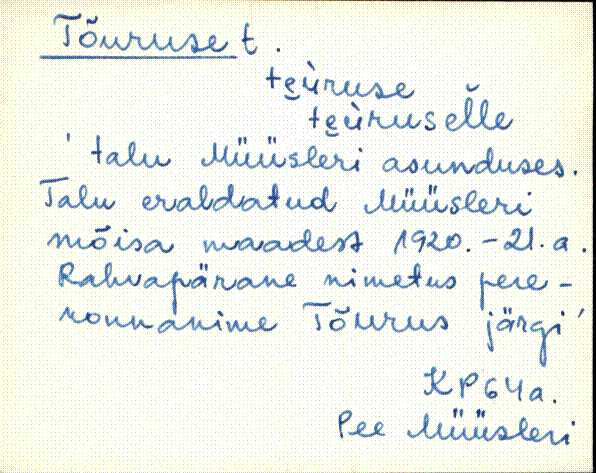 Tõuruse t.
te̮ùruse
te̮ùrusel̆l̆e
' talu Müüsleri asunduses.
Talu eraldatud Müüsleri
mõisa maadest 1920.-21.a.
Rahvapärane nimetus pere-
konnanime Tõurus järgi'
KP64a.
Pee Müüsleri